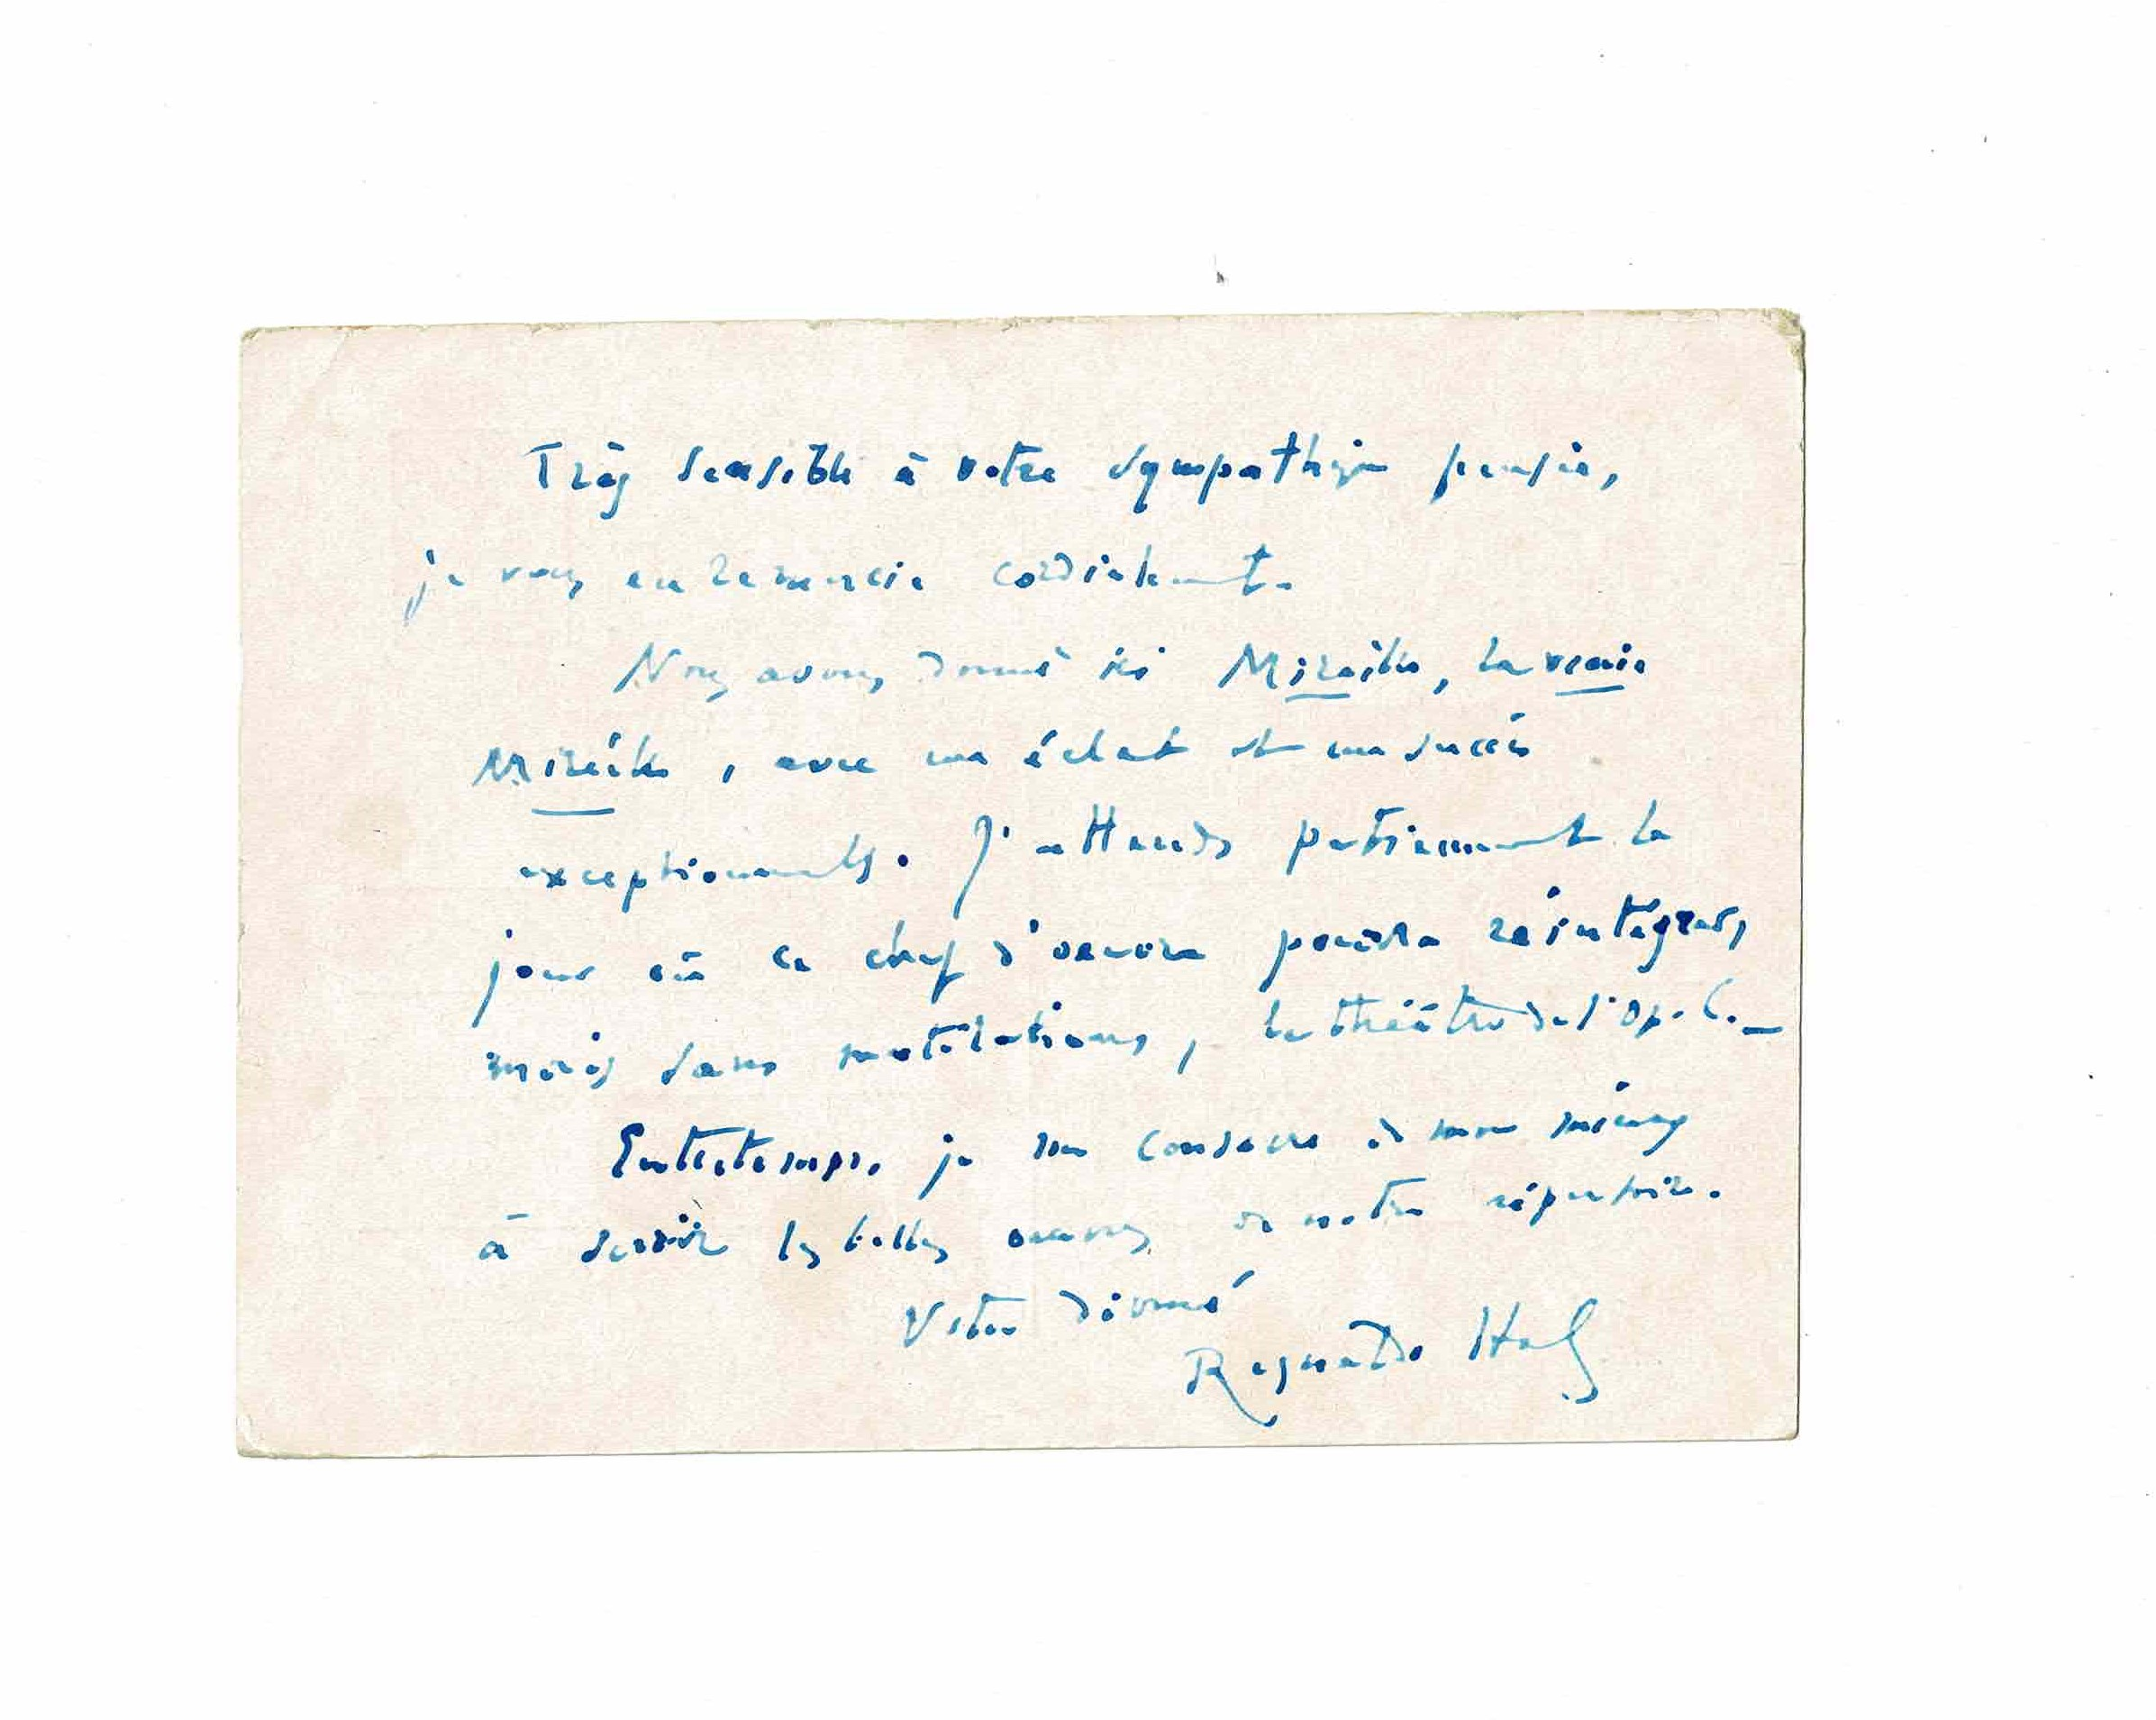 Très sensible à votre sympathique pensée,
je vous en remercie cordialement.
Nous avons donné ici Mireille, la vraie
Mireille, avec un éclat et un succès
exceptionnels. J'attends patiemment le
jour où ce chef d'oeuvre pourra réintégrer,
mais sans mutilations, le théâtre de l'Op. C. _
Entretemps, je me consacre de mon mieux
à servir les belles oeuvres de notre répertoire.
Votre dévoué
Reynaldo Hahn